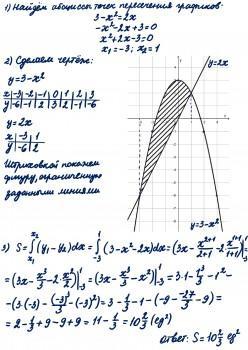 1) Найдём абсциссы точек пересечения графиков:
3-x²=2x
-x²-2x+3=0
x²+2x-3=0
x₁=-3; x₂=1
2) Сделаем чертёж:
y=3-x²
x|-3|-2|-1|0|1|2|3
y|-6|-1|2|3|2|-1|-6
y=2x
x|-3|1
y|-6|2
Штриховкой покажем
фигуру, ограниченную
заданными линиями
y=2x
y=3-x²
3) S=∫(y₁-y₂)dx=∫(3-x²-2x)dx=(3x-x²⁺¹/2+1-2·x¹⁺¹/1+1)|=
=(3x-x³/3-2·x²/2)|=(3x-x³/3-x²)|=3·1-1³/3-1²-
-(3·(-3)-(-3)³/3-(-3)²)=3-1/3-1-(-9-(-27)/3-9)=
=2-1/3+9-9+9=11-1/3=10 2/3 (ед²)
Ответ: S=10 2/3 ед²